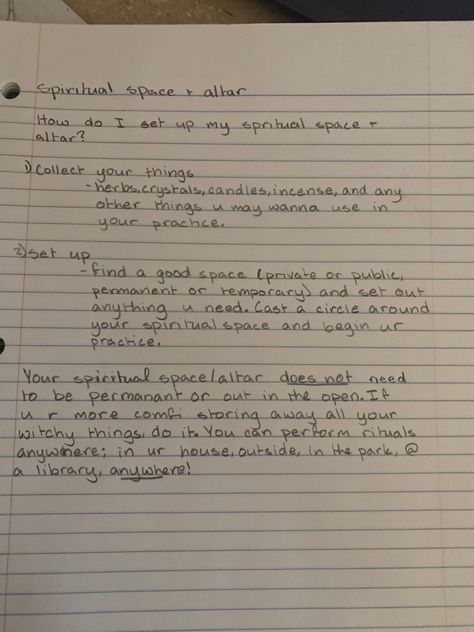 spiritual space + altar
How do I set up my spritual space +
altar?
1) Collect your things
- herbs, crystals, candles, incense, and any
other things u may wanna use in
your practice.
2) set up
- find a good space (private or public,
permanent or temporary) and set out
anything u need. Cast a circle around
your spiritual space and begin ur
practice.
Your spiritual space/altar does not need
to be permanant or out in the open. If
u r more comfi storing away all your
witchy things, do it. You can perform rituals
anywhere; in ur house, outside, in the park, @
a library, anywhere!